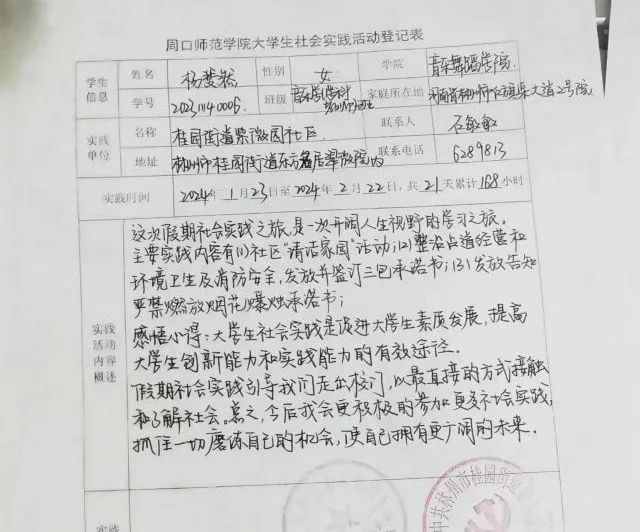 周口师范学院大学生社会实践活动登记表
学生信息 姓名 杨梦然 性别 女 学院 音乐舞蹈学院
学号 20231140006 班级 音乐学本科 家庭所在地 大道2号院
实践单位 名称 桂园街道紫薇园社区 联系人 石敏敏
地址 林州市桂园街道东方名居翠微院内 联系电话 6289813
实践时间 2024年1月23日至2024年2月22日,共21天累计168小时
实践活动内容概述
这次假期社会实践之旅,是一次开阔人生视野的学习之旅。
主要实践内容有(1)社区"清洁家园"活动;(2)整治占道经营和
环境卫生及消防安全,发放并签订三包承诺书;(3)发放告知
严禁燃放烟花爆烛承诺书;
感悟心得:大学生社会实践是促进大学生素质发展,提高
大学生创新能力和实践能力的有效途径。
假期社会实践引导我们走出校门,以最直接的方式接触
和了解社会。总之,今后我会更积极的参加更多社会实践,
抓住一切磨练自己的机会,使自己拥有更广阔的未来.
实践
中共林州市桂园街道